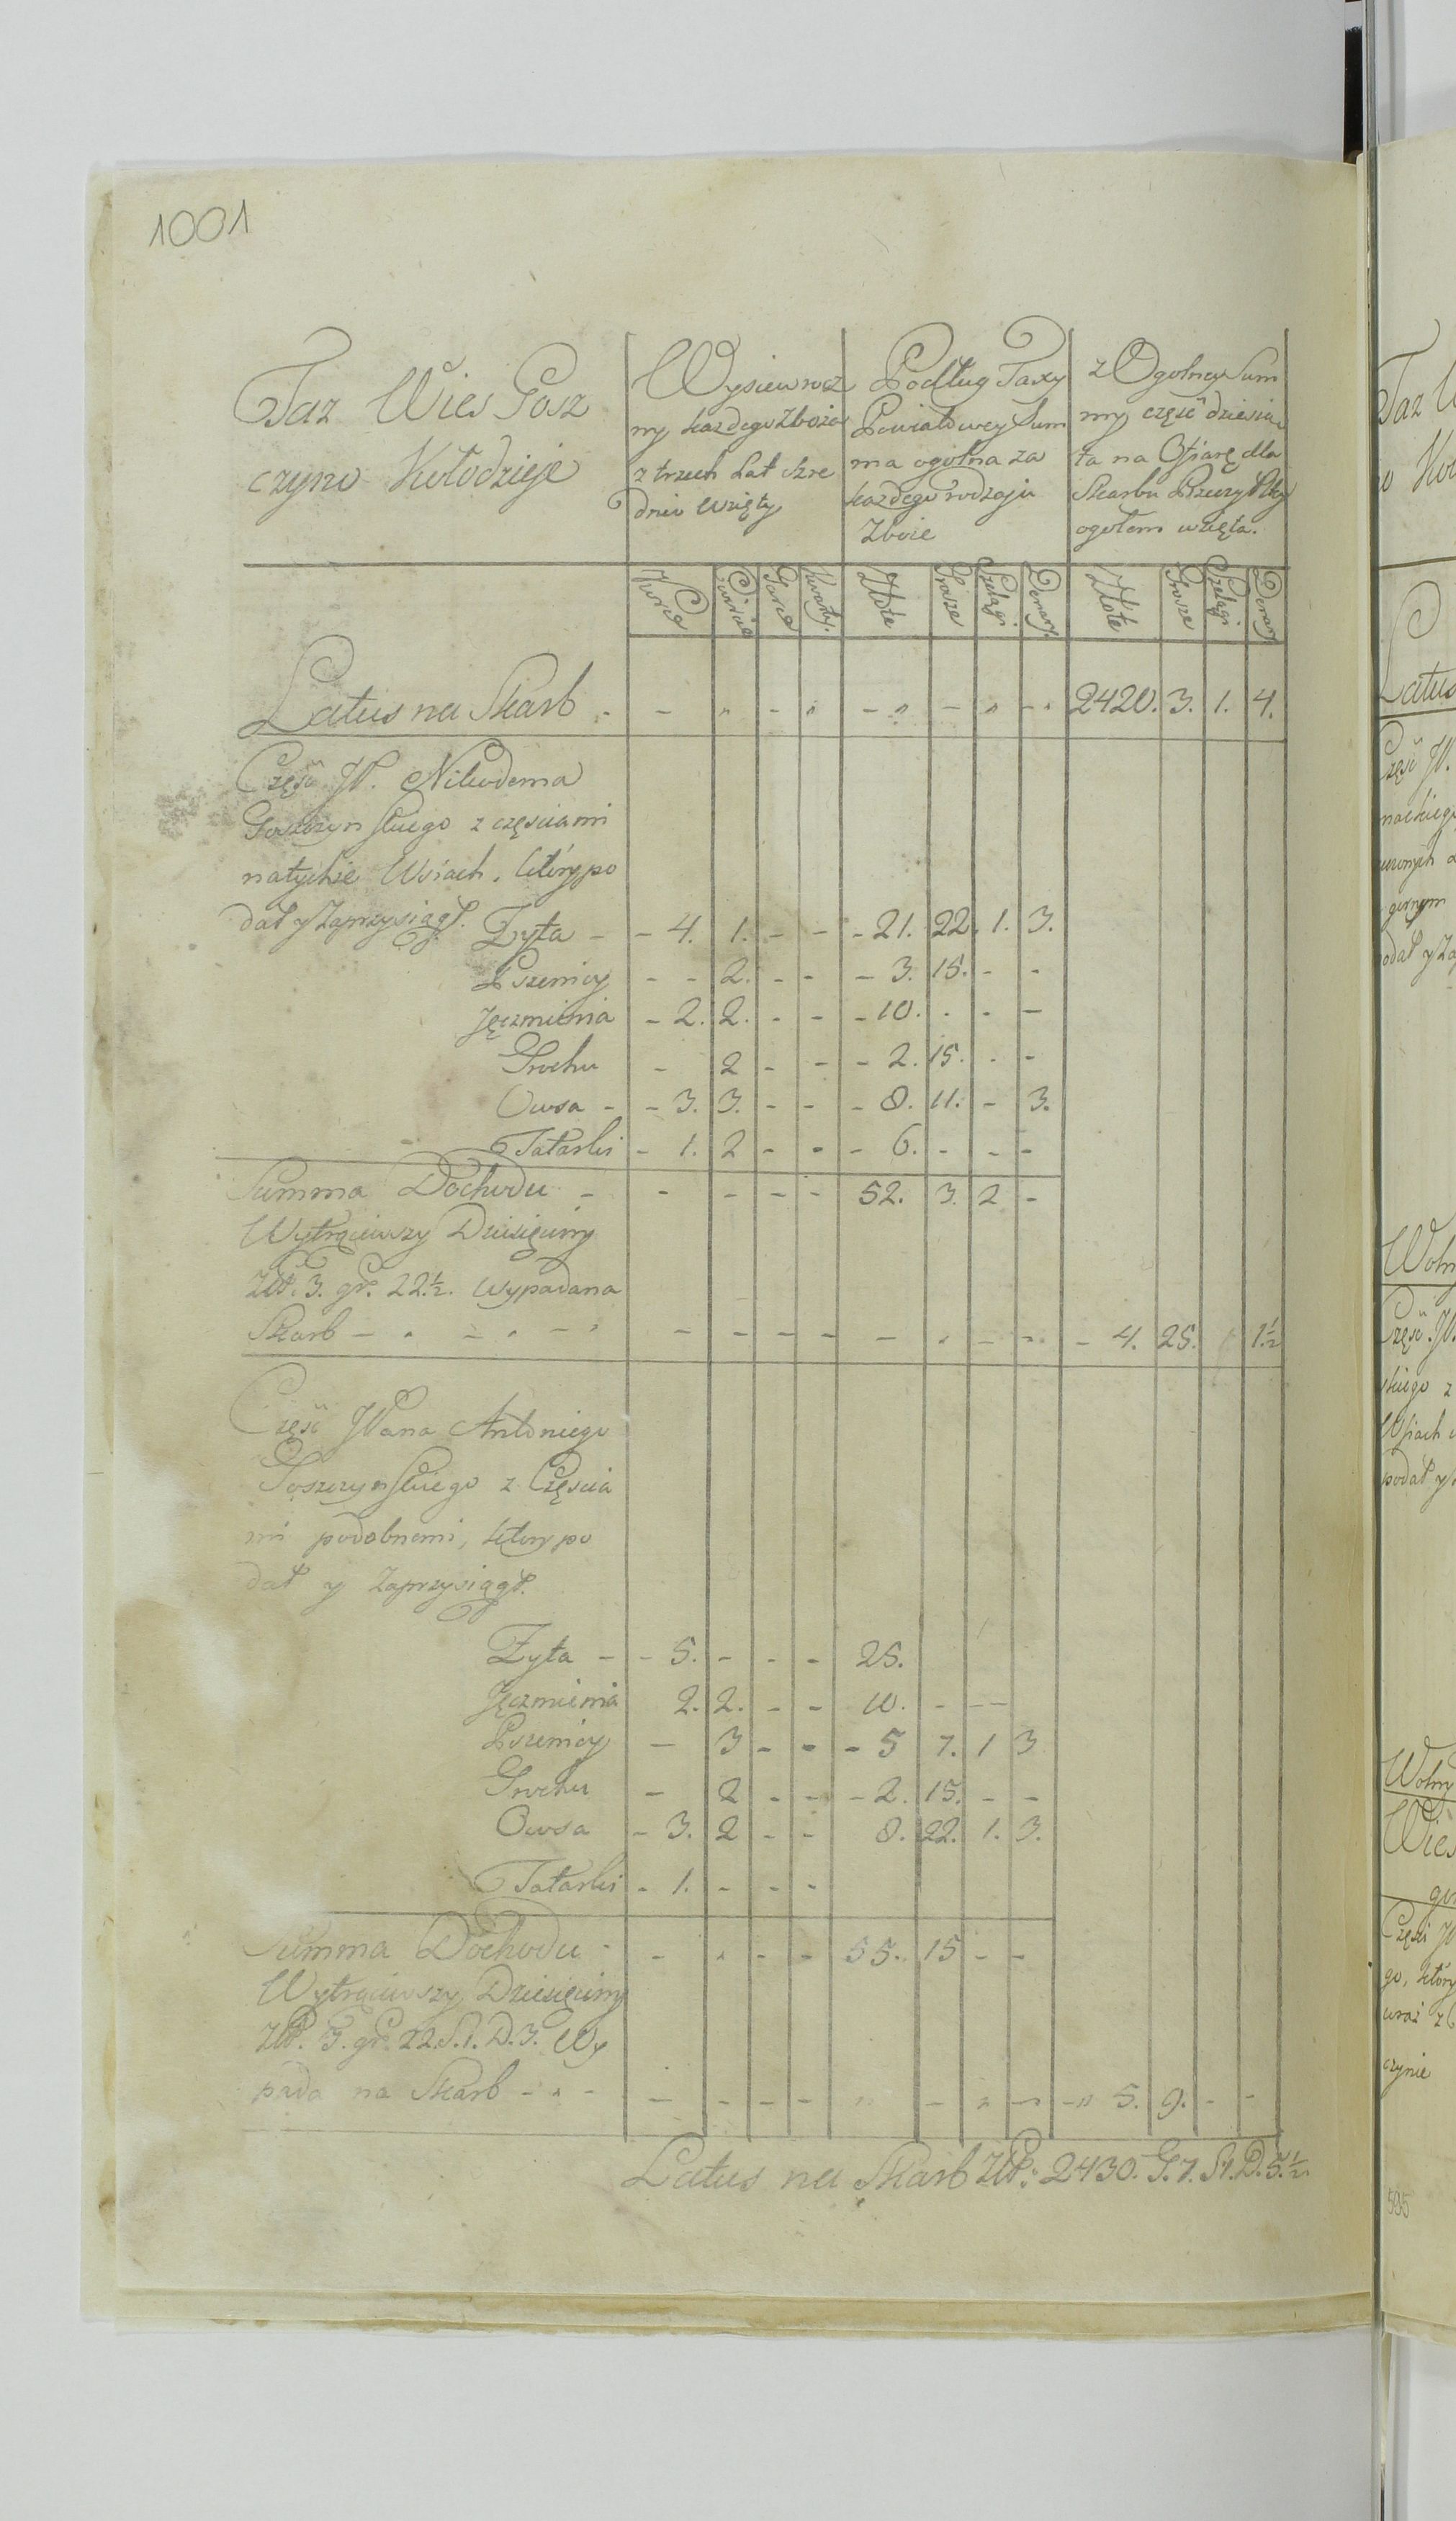 1001
Taz Wies Gosz
czyno Kołodzieje
Wysiew rocz
ny każdego Zboża
z trzech Lat szre
dnio wzięty
Podług Taxy
Powiatowey Sum
ma ogolna za
każdego rodzaju
Zboże
z Ogolney Sum
my część dziesią
ta na Ofiarę dla
Skarbu Rzeczyptey
ogołem wzięta.
Korce Cwierce Garce Kwarty. Złote Grosze Szelągi Denary. Złote Grosze Szelągi Denary
Latus na Skarb - - " - " - " - " - " 2420. 3. 1. 4.
Część JP. Nikodema
Goszczynskiego z częsciami
natychże Wsiach, który po
dał y Zaprzysiągł. Zyta - - 4. 1. - - - 21. 22. 1. 3.
Pszenicy - - 2. - - - 3. 15. - -
Jęczmienia - 2. 2. - - - 10. - - -
Grochu - 2 - - - 2. 15. - -
Owsa - - 3. 3. - - - 8. 11. - 3.
Tatarki - 1. 2 - - - 6. - - -
Summa Dochodu - - - - - 52. 3. 2 -
Wytrąciwszy Dziesięciny
Złł. 3. gr. 22.½. wypada na
Skarb - " - " - " - - - - - " - - " - 4. 25. 1.½
Część JPana Antoniego
Goszczynskiego z Częścia
mi podobnemi, który po
dał y Zaprzysiągł.
Zyta - - 5. - - - 25.
Jęczmienia 2. 2. - - 10. - - -
Pszenicy - 3 - - - 5 7. 1 3
Grochu - 2 - - - 2. 15. - -
Owsa - 3. 2 - - 8. 22. 1. 3.
Tatarki - 1. - - -
Summa Dochodu - - " - - 55. 15 - -
Wytrąciwszy Dziesięciny
Złł. 3. gr. 22. S.1. D.3. Wy
pada na Skarb - " - - - - - " - " - - " 5. 9. - -
Latus na Skarb Złł: 2430. G. 7. S1. D. 5.½